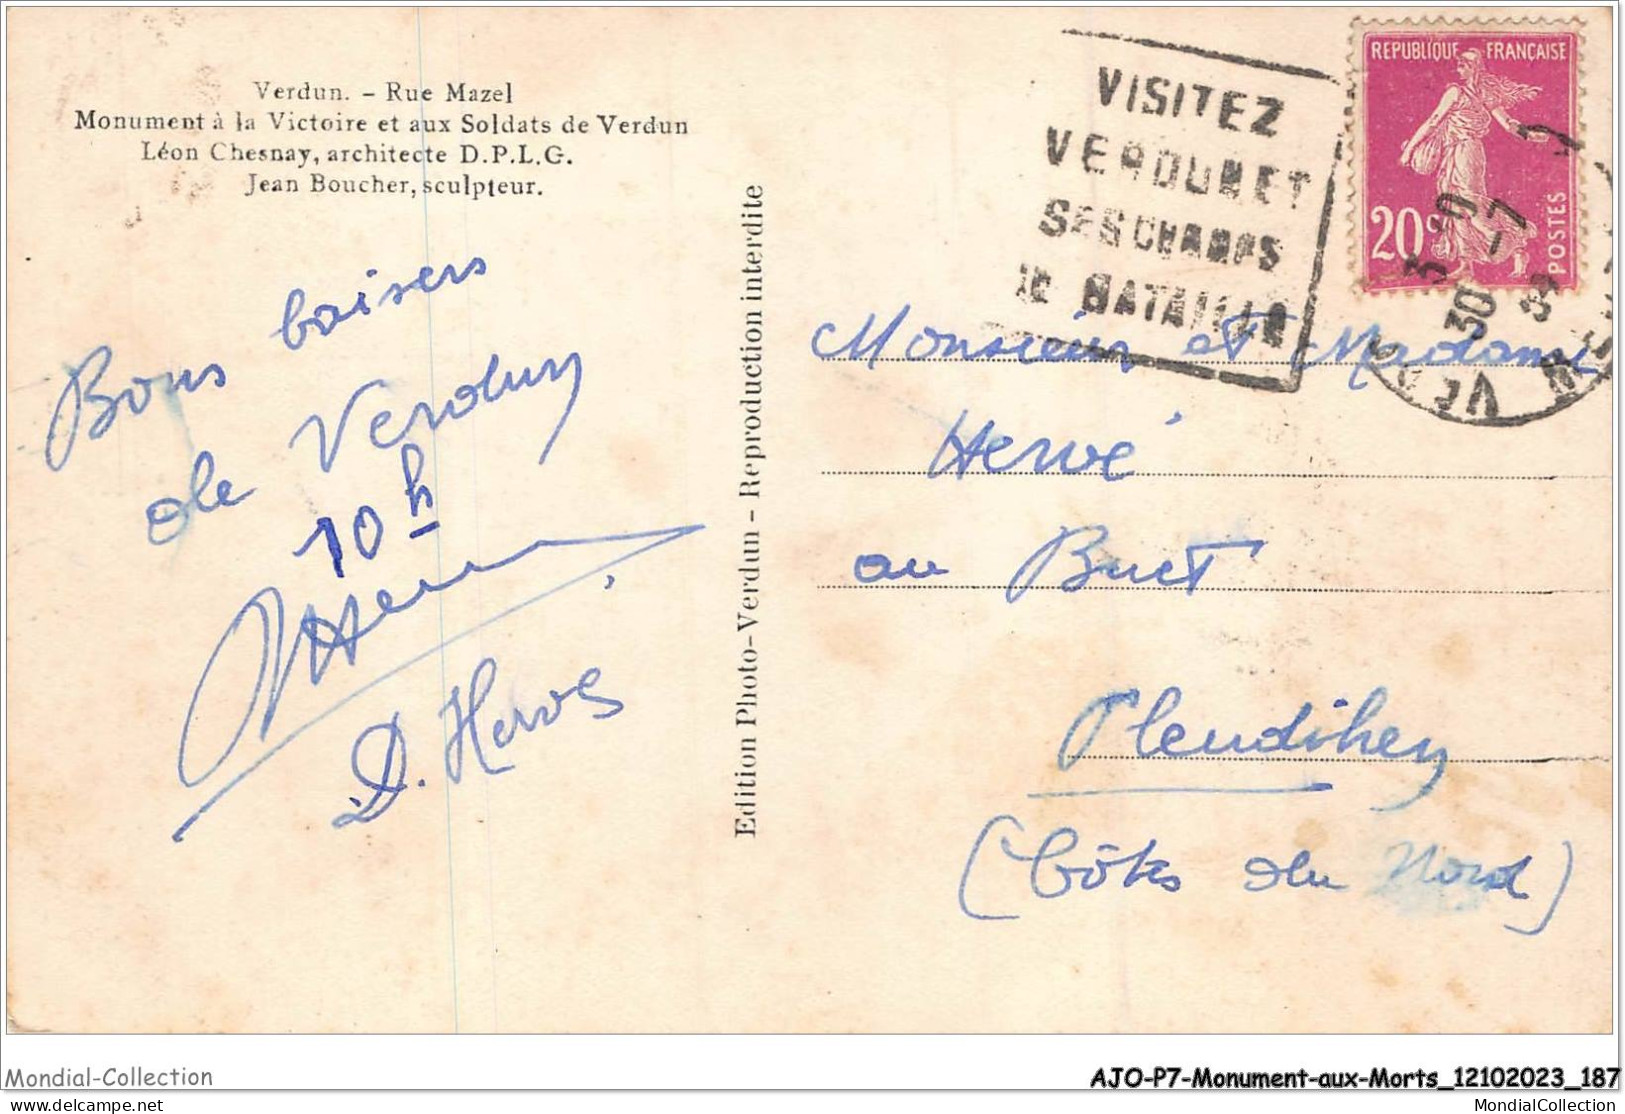 Verdun. - Rue Mazel
Monument à la Victoire et aux Soldats de Verdun
Léon Chesnay, architecte D.P.L.G.
Jean Boucher, sculpteur.
Bons baisers
de Verdun
10h
D. Hervé
Edition Photo-Verdun - Reproduction interdite
VISITEZ
VERDUN ET
SES CHAMPS
DE BATAILLE
REPUBLIQUE FRANÇAISE
20c
POSTES
30 -7
Monsieur et Madame
Hervé
au Buet
Pleudihen
(Côtes du Nord)
Mondial-Collection
AJO-P7-Monument-aux-Morts_12102023_187
delcampe.net
MondialCollection